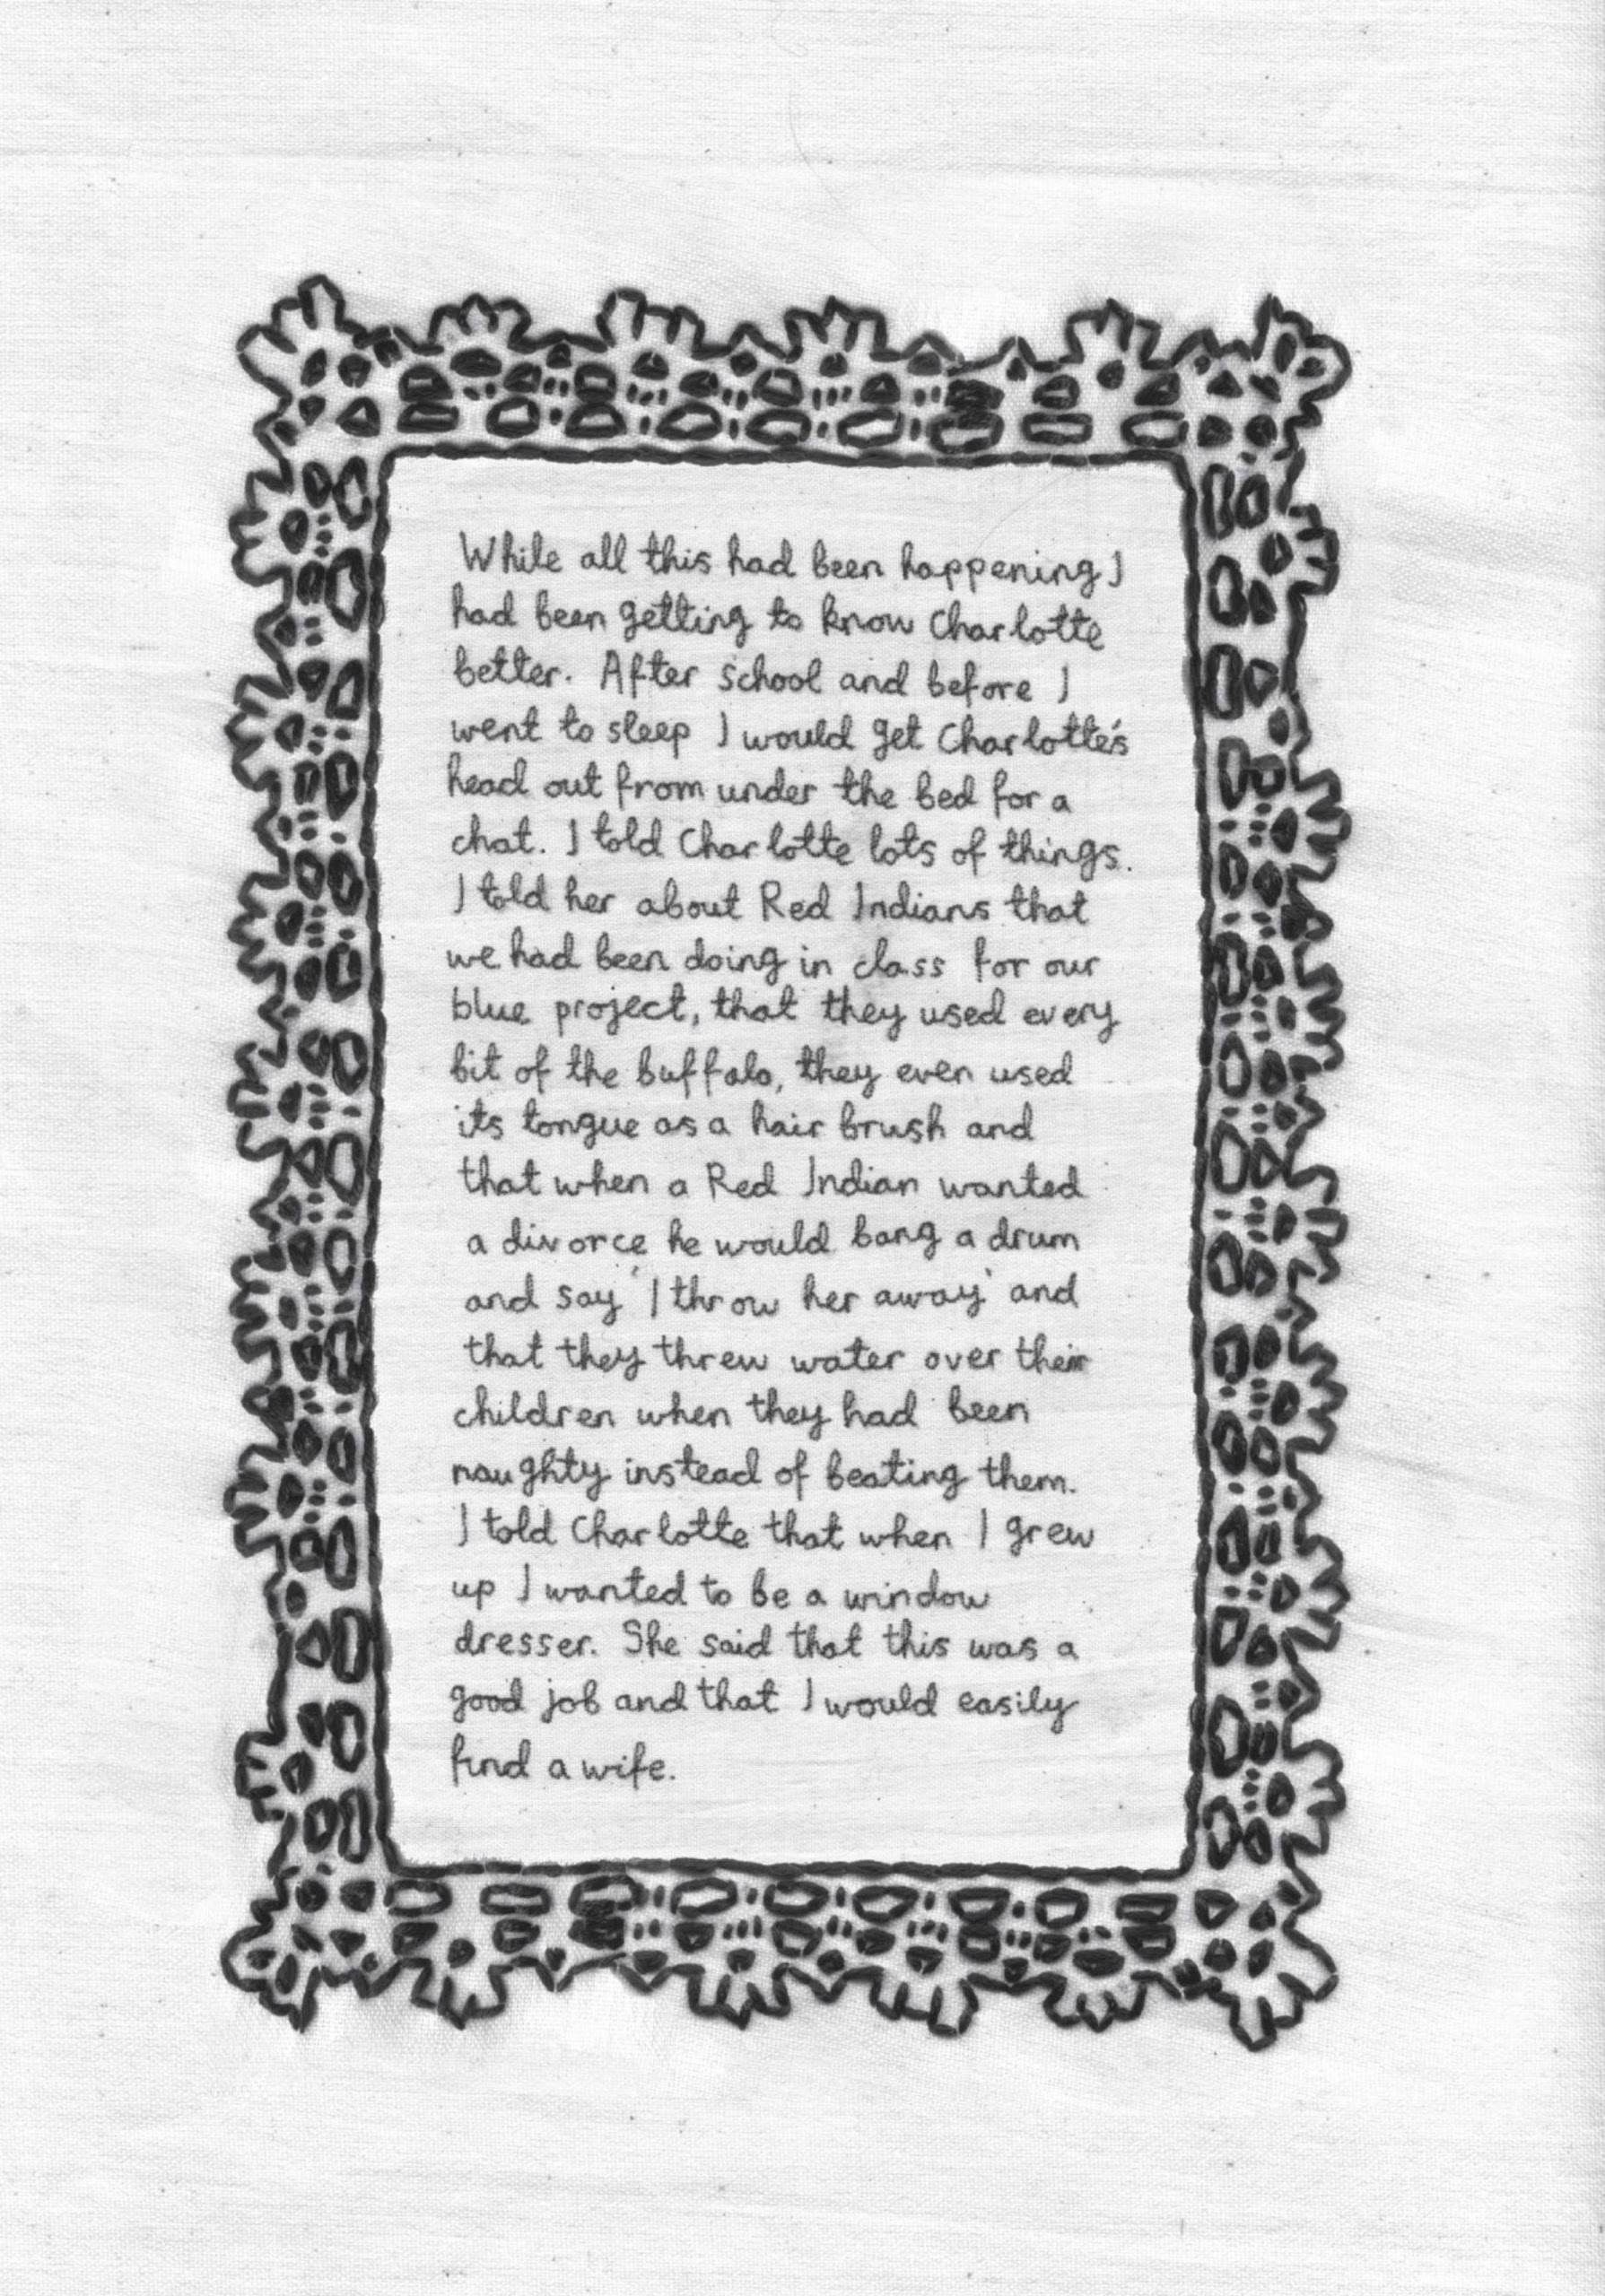 While all this had been happening I
had been getting to know Charlotte
better. After school and before I
went to sleep I would get Charlotte's
head out from under the bed for a
chat. I told Charlotte lots of things.
I told her about Red Indians that
we had been doing in class for our
blue project, that they used every
bit of the buffalo, they even used
its tongue as a hair brush and
that when a Red Indian wanted
a divorce he would bang a drum
and say 'I throw her away' and
that they threw water over their
children when they had been
naughty instead of beating them.
I told Charlotte that when I grew
up I wanted to be a window
dresser. She said that this was a
good job and that I would easily
find a wife.